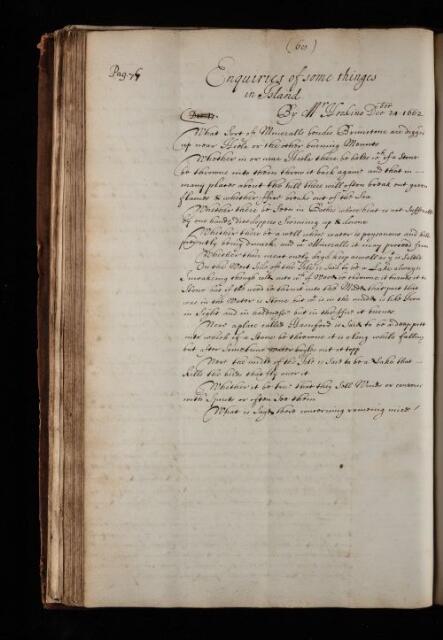 (60)
Pag: 75
Enquiries of some thinges
in Island
By Mr Hoskins Decbr 24. 1662
What sort of Mineralls besides Brimstone are digged
up near Hecla or the other burning Mounts
Whether in or near Hecla there be holes wch if a stone
be throwne into them throw it back againe and that in
many places about the hill there will often break out great
flames & whether fire breaks out of the Sea
Whether there be seen in Bathes whose heat is not sufferable
by ones hand, swiming up & downe
Whether there be a well whose water is poysonous and kills
being drunk and wt Mineralls it may proceed from
Whether their meat only dryd keep as well as if salted
On the West side of the Isle is said to be a Lake always
Smoaking though cold into wch if Wood be it turnes it to
Stone but if the wood be thrust into the Mudd that part that
was in the Water is Stone but wt is in the mudd is like Iron
in sight and in hardnesse but in the fire it burnes
Near a place called is said to be a deep pitt
into which if a Stone be throwne it is along while falling
but after sometime water out at topp
Near the midle of the Isle is said to be a Lake that
kills the birds that fly over it
Whether it be true that they sell Winds or converse
with Spirits or often see them
What is said there concerning raineing mice